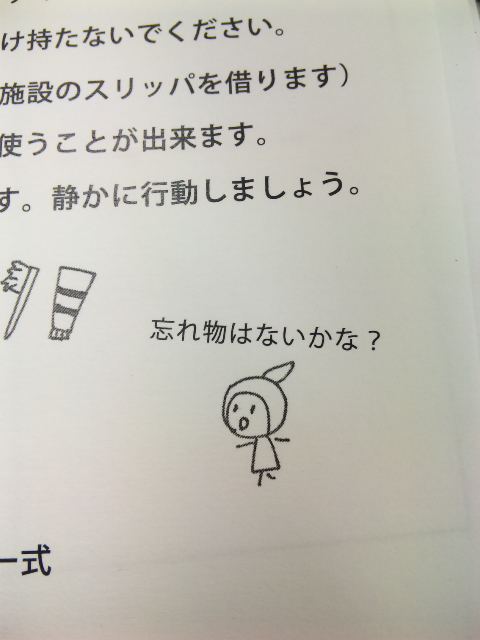 け持たないでください。
施設のスリッパを借ります）
使うことが出来ます。
す。静かに行動しましょう。
忘れ物はないかな？
一式